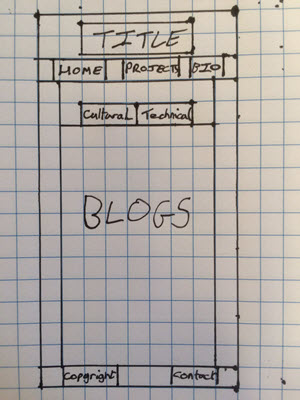 TITLE
HOME PROJECTS BIO
Cultural Technical
BLOGS
Copyright Contact